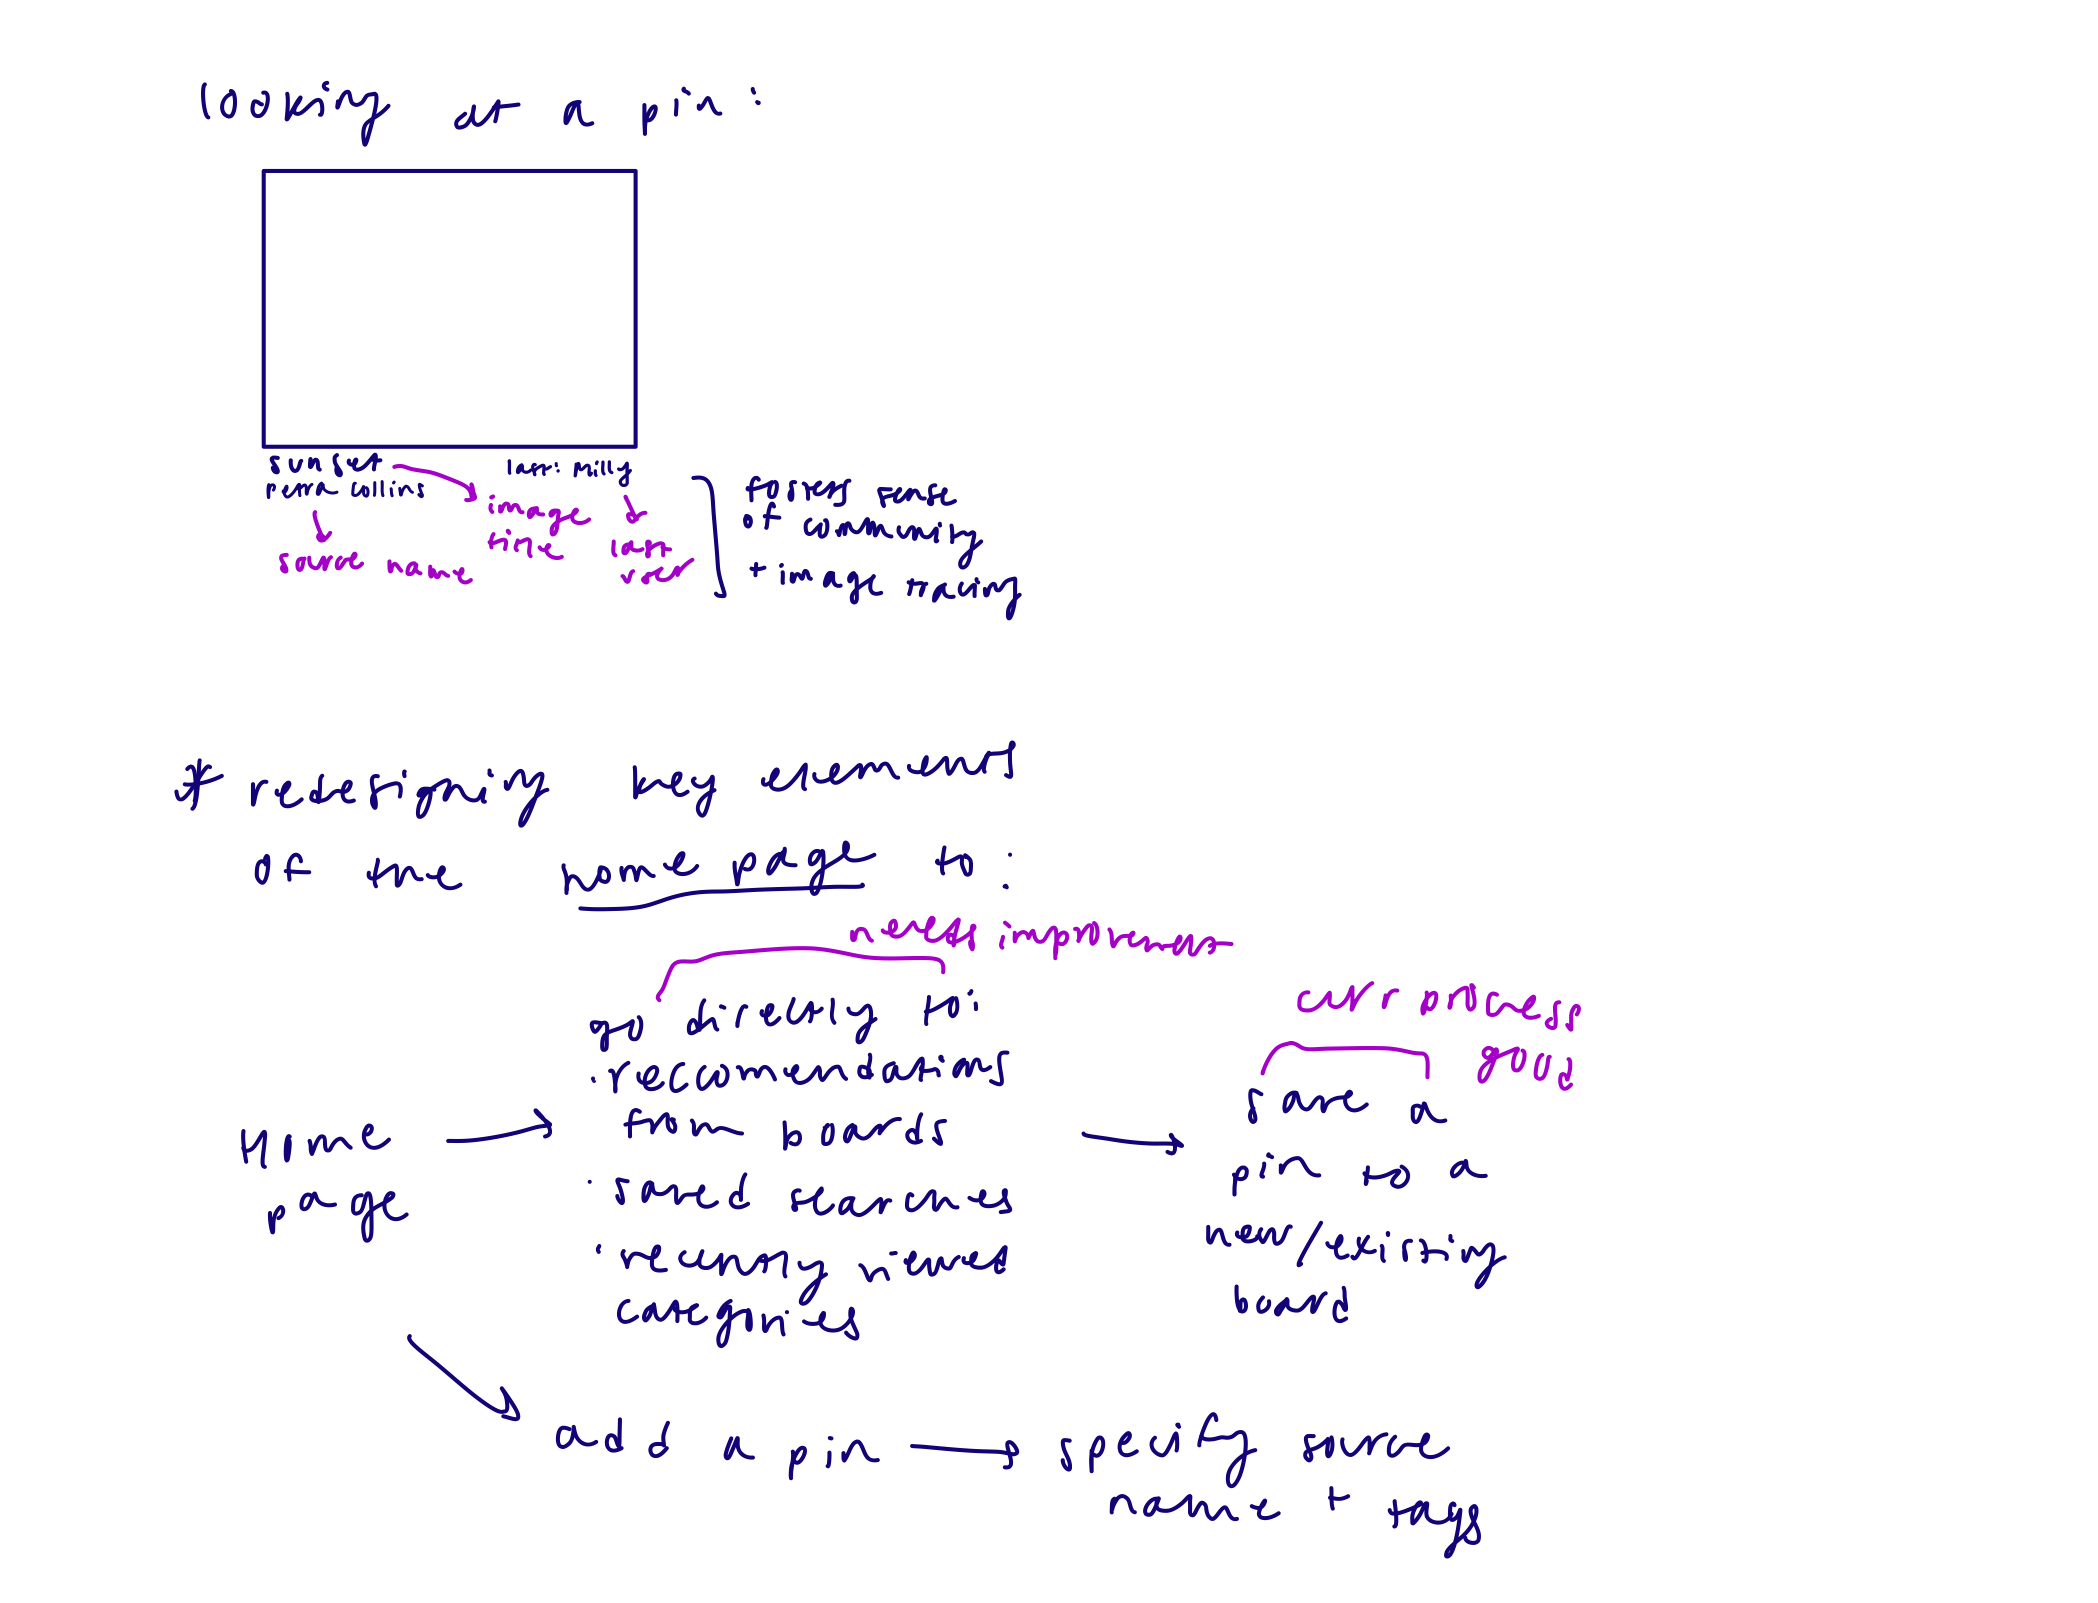 looking at a pin:
sunset
last: milly
collins
image
title
last
user
source name
fosters sense
of community
+ image tracing
* redesigning key elements
of the home page to:
needs improvement
go directly to:
· reccomendations
from boards
· saved searches
· recently viewed
categories
curr process
good
save a
pin to a
new/existing
board
Home
page
add a pin
specify source
name + tags